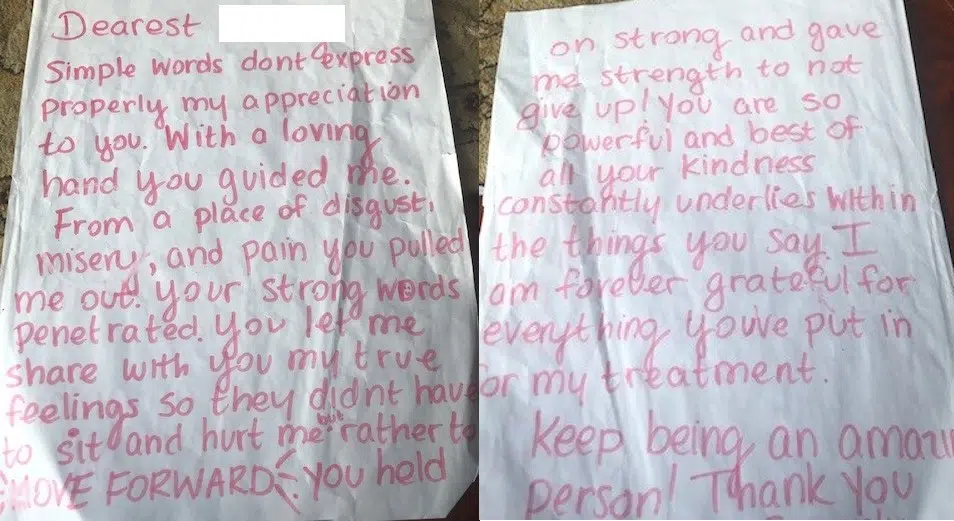 Dearest
Simple words dont express
properly my appreciation
to you. With a loving
hand you guided me.
From a place of disgust,
misery, and pain you pulled
me out! your strong words
penetrated. You let me
share with you my true
feelings so they didnt have
to sit and hurt me but rather to
MOVE FORWARD! you held
on strong and gave
me strength to not
give up! you are so
powerful and best of
all your kindness
constantly underlies within
the things you say. I
am forever grateful for
everything youve put in
for my treatment.
Keep being an amazi
person! Thank you